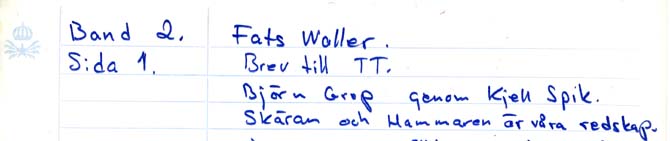 Band 2. Fats Waller.
Sida 1. Brev till TT.
Björn Grop genom Kjell Spik.
Skäran och Hammaren är våra redskap.